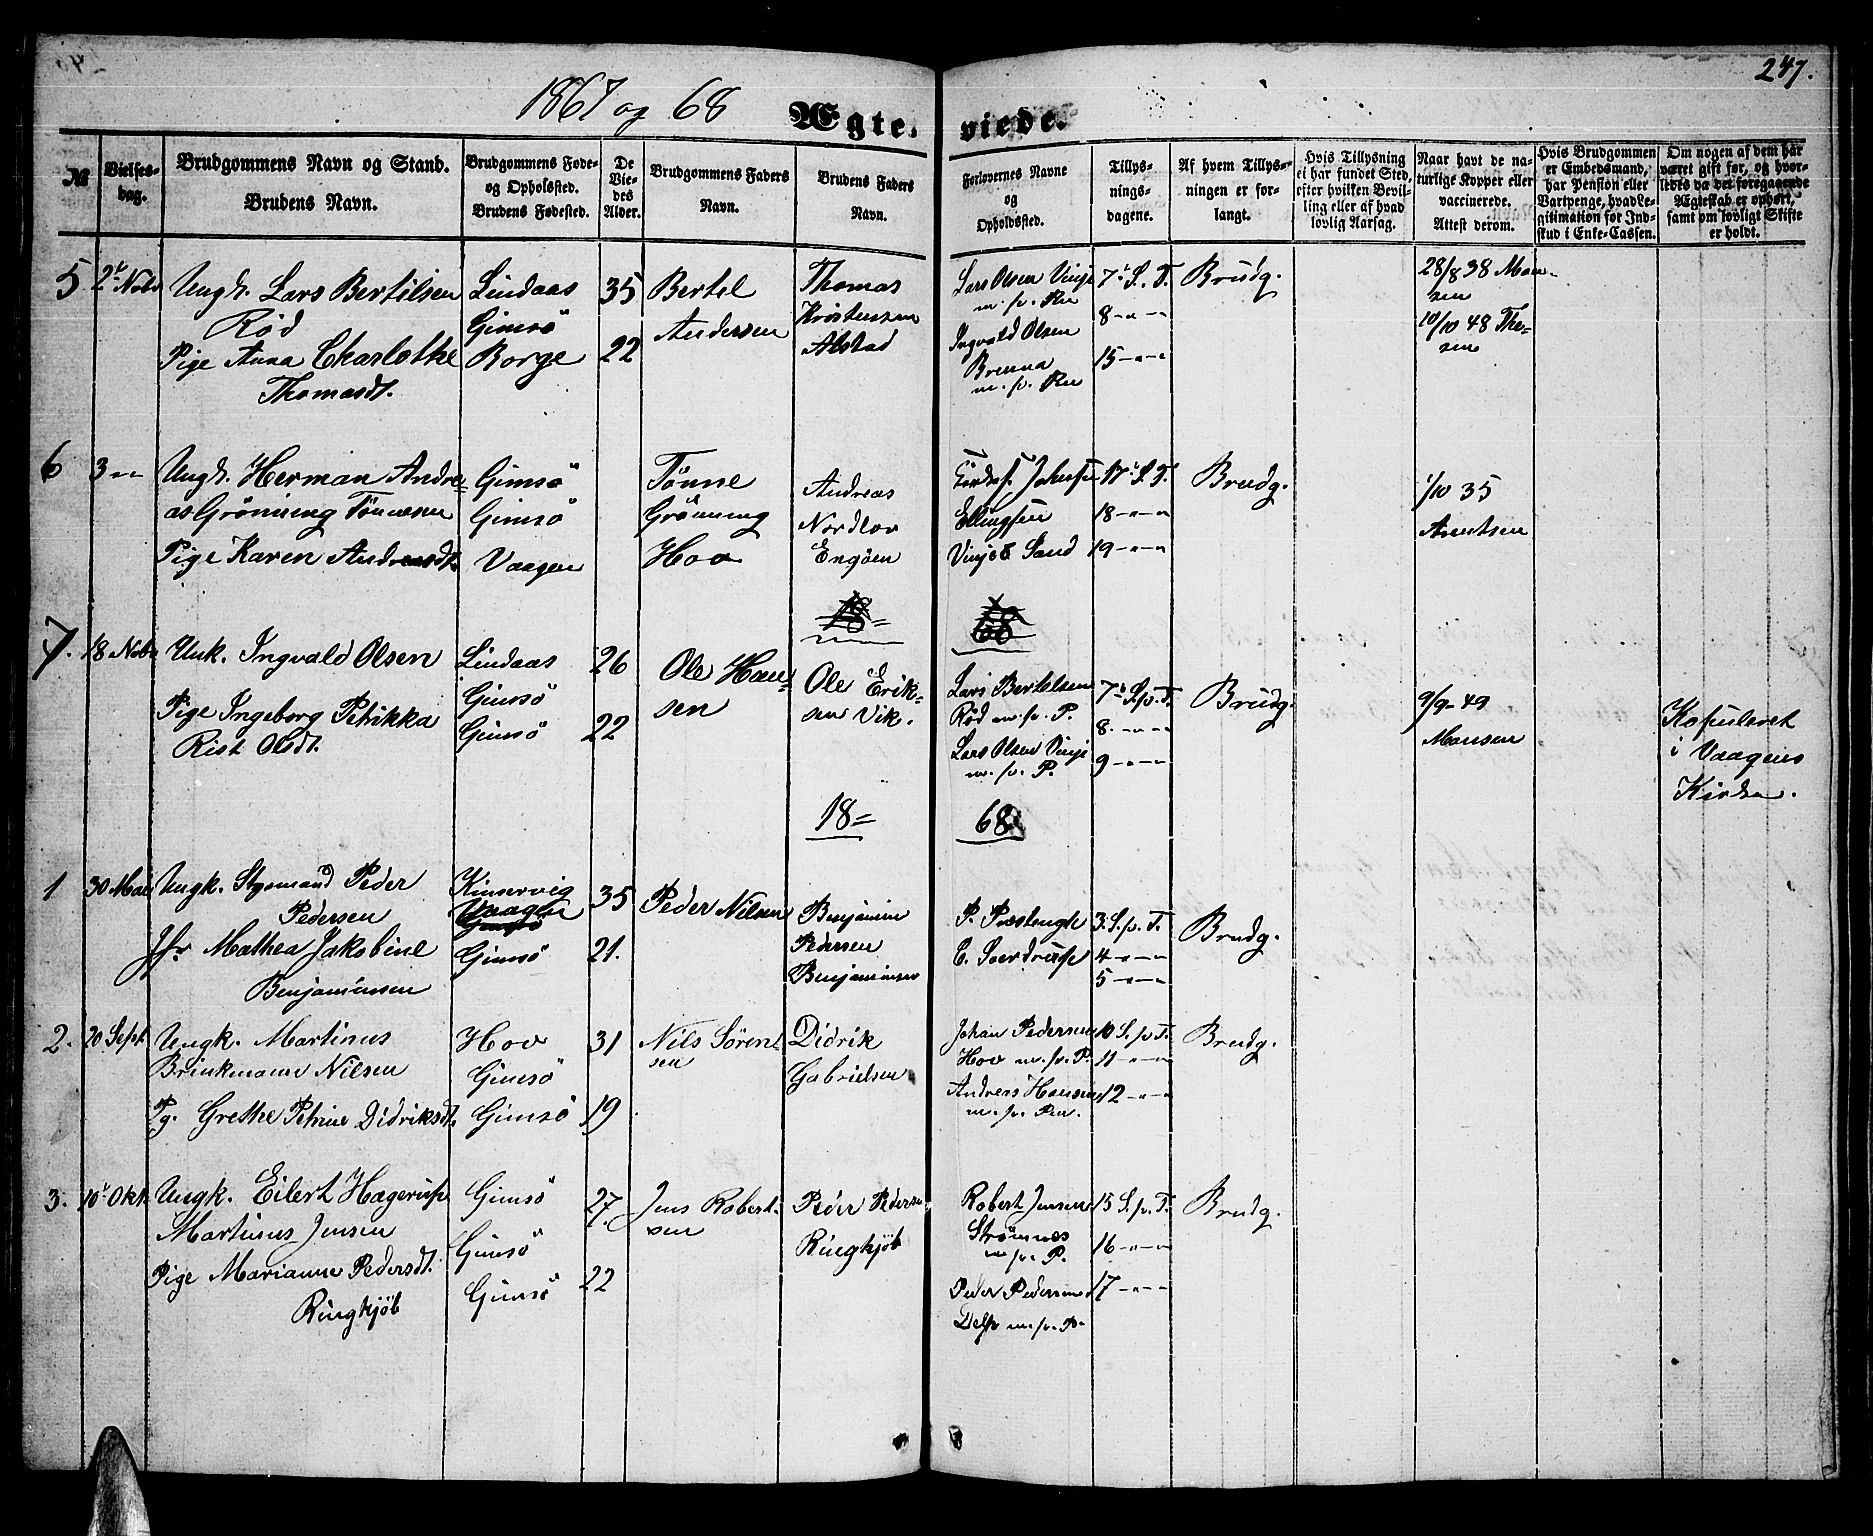 1867 og 68
Ægte-viede.
247.
№
Vielses-
dag.
Brudgommens Navn og Stand.
Brudens Navn.
Brudgommens Føde-
og Opholdssted.
Brudens Fødested.
De
Vie-
des
Alder.
Brudgommens Faders
Navn.
Brudens Faders
Navn.
Forlovernes Navne
og
Opholdssted.
Tillys-
nings-
dagene.
Af hvem Tillys-
ningen er for-
langt.
Hvis Tillysning
ei har fundet Sted,
efter hvilken Bevil-
ling eller af hvad
lovlig Aarsag.
Naar havt de na-
turlige Kopper eller
vaccinerede.
Attest derom.
Hvis Brudgommen
er Embedsmand,
har Pension eller
Vartpenge, hvad Le-
gitimation for Ind-
skud i Enke-Cassen.
Om nogen af dem har
været gift før, og hvor-
ledes da det foregaaende
Ægteskab er ophørt,
samt om lovligt Skifte
er holdt.
5
2. Nobr
Ungk. Lars Bertilsen
Rød
Pige Anna Charlothe
Thomasdt.
Lindaas
Gimsö
Borge
35
22
Bertel
Andersen
Thomas
Kristensen
Alstad
Lars Olsen Vinje
m. p. Pen
Ingvald Olsen
Brenna
m. p. Pen
7. S. T.
8 - " -
15 - " -
Brudg.
28/8 38 Mon-
sen
10/10 48 The-
sen
6
3 "
Ungk. Herman Andre-
as Grönning Tönnesen
Pige Karen Andreasdt.
Gimsö
Gimsö
Vaagen
Tönne
Grönning
Hov
Andreas
Nordlov
Engöen
Johnsen
Ellingsen
Vinje & Sand
17. S. T.
18 - " -
19 - " -
Brudg.
1/10 35
Arentsen
18=
68
7.
18 Nobr
Unk. Ingvald Olsen
Pige Ingeborg Petrikka
Rist Olsdt.
Lindaas
Gimsö
Gimsö
26
22
Ole Han-
sen
Ole Erik-
sen Vik.
Lars Bertelsen
Rød m. p. P.
Lars Olsen Vinje
m. p. P.
7. S. p. T.
8. - " -
9 - " -
Brudg.
9/9 - 49
Monsen
Kopuleret
i Vaagens
Kirke.
18=
68
1
30 Mai
Ungk. Sygmund Peder
Pedersen
Jfr Mathea Jakobine
Benjaminsen
Kinservig
Vaagen
Gimsö
Gimsö
35
21.
Peder Nilsen
Benjamin
Pedersen
Benjaminsen
P. Præstengh
C. Sverdrup
3. S. p. T.
4 - " -
5 - " -
Brudg.
2.
20 Sept.
Ungk. Martinus
Brinkmann Nilsen
Pg. Grethe Petrine Didriksdt.
Hov
Gimsö
Gimsö
31
19
Nils Sören-
sen
Didrik
Gabrielsen
Johan Pedersen
Hov m. p. P.
Andreas Hansen
m. p. Pen.
10 S. p. T.
11 - " -
12 - " -
Brudg.
3.
10. Okt.
Ungk. Eilert Hagerup
Martinus Jensen
Pige Marianne Pedersdt.
Ringkjöb
Gimsö
Gimsö
Gimsö
27
22
Jens Robert-
sen
Peder Pedersen
Ringkjöb
Robert Jensen
Strömnes
m. p. P.
Peder Pedersen
Delp m. p. P.
15 S. p. T.
16 - " -
17 - " -
Brudg.